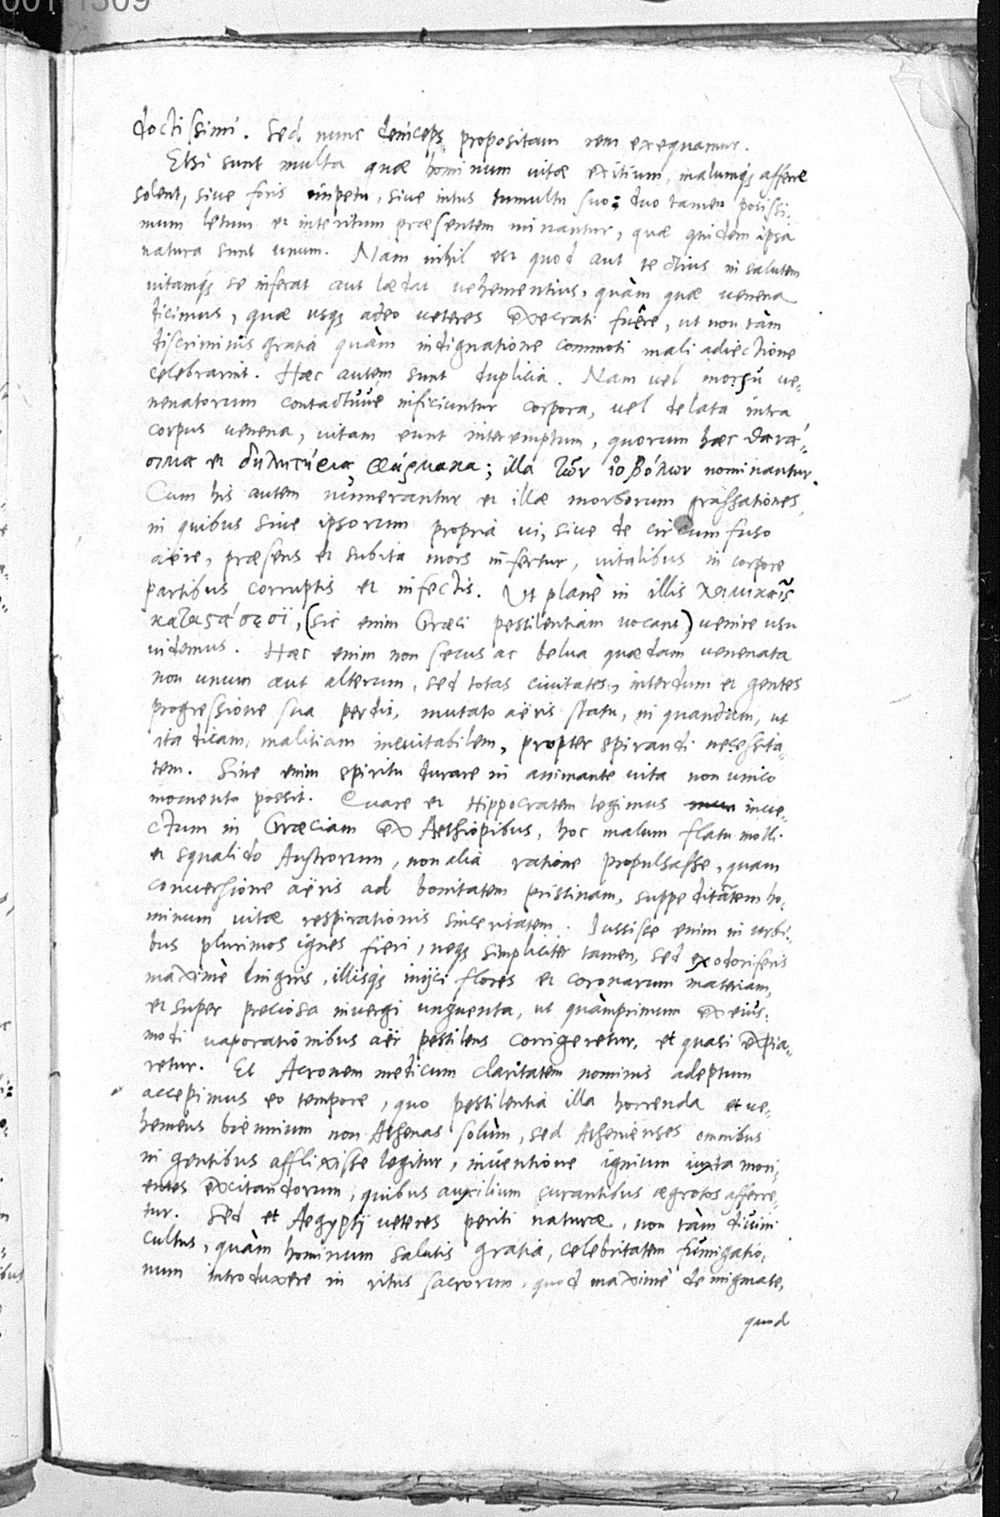 doctissimi. Sed nunc deinceps propositam rem exequamur.
Etsi sunt multa quae hominum vitae exitium, malumq́; afferre
solent, sive foris impetu, sive intus tumultu suo: duo tamen potissi-
mum letum et interitum praesentem minantur, quae quidem ipsa
natura sunt unum. Nam nihil est quod aut tectius in salutem
vitamq́; se inferat aut laedat vehementius, quàm quae venena
dicimus, quae usq; adeo veteres execrati fuêre, ut non tàm
discriminis gratia quàm indignatione commoti mali adiectione
celebrarint. Haec autem sunt duplicia. Nam vel morsu ve-
nenatorum contactuve inficiuntur corpora, vel delata intra
corpus venena, vitam eunt interemptum, quorum haec θανά-
σιμα et δηλητήρια φάρμακα; illa τῶν ἰοβόλων nominantur.
Cum his autem numerantur et illae morborum grassationes,
in quibus sive ipsorum propria vi, sive de circumfuso
aëre, praesens et subita mors infertur, vitalibus in corpore
partibus corruptis et infectis. Ut planè in illis λοιμικαῖς
καταστάσεσι, (sic enim Graeci pestilentiam vocant) venire usu
videmus. Haec enim non secus ac belua quaedam venenata
non unum aut alterum, sed totas civitates, interdum et gentes
progressione sua perdit, mutato aëris statu, in quandam, ut
ita dicam, malitiam inevitabilem, propter spirandi necessita-
tem. Sine enim spiritu durare in animante vita non unico
momento possit. Quare et Hippocratem legimus inve-
ctum in Graeciam ex Aethiopibus, hoc malum flatu molli
et squalido Austrorum, non alia ratione propulsasse, quam
conversione aëris ad bonitatem pristinam, suppeditatem ho-
minum vitae respirationis sinceritatem. Iussisse enim in urbi-
bus plurimos ignes fieri, neq; simpliciter tamen, sed ex odoriferis
maximè lingnis, illisq́; iniici flores et coronarum materiam,
et super preciosa invergi unguenta, ut quàmprimum ex eius-
modi vaporationibus aër pestilens corrigeretur, et quasi expia-
retur. Et Acronem medicum claritatem nominis adeptum
accepimus eo tempore, quo pestilentia illa horrenda et ve-
hemens biennium non Athenas solùm, sed Athenienses omnibus
in gentibus afflixisse legitur, inventione ignium iuxta mori-
entes excitandorum, quibus auxilium curantibus aegrotos afferre-
tur. Sed et Aegyptij veteres periti naturae, non tàm divini
cultus, quàm hominum salutis gratia, celebritatem fumigatio-
num introduxere in ritus sacrorum, quod maximè de migmate,
quod